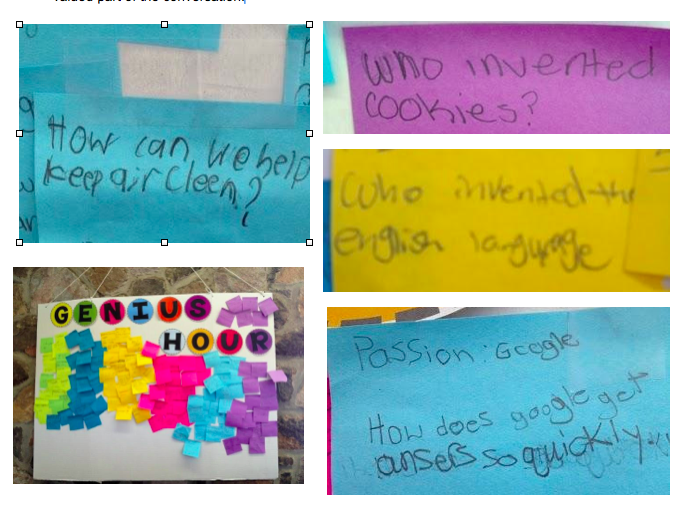 valued part of the conversation.
How can we help
keep air cleen?
Who invented
cookies?
Who invented the
english language
GENIUS
HOUR
Passion: Google
How does google get
ansers so quickly